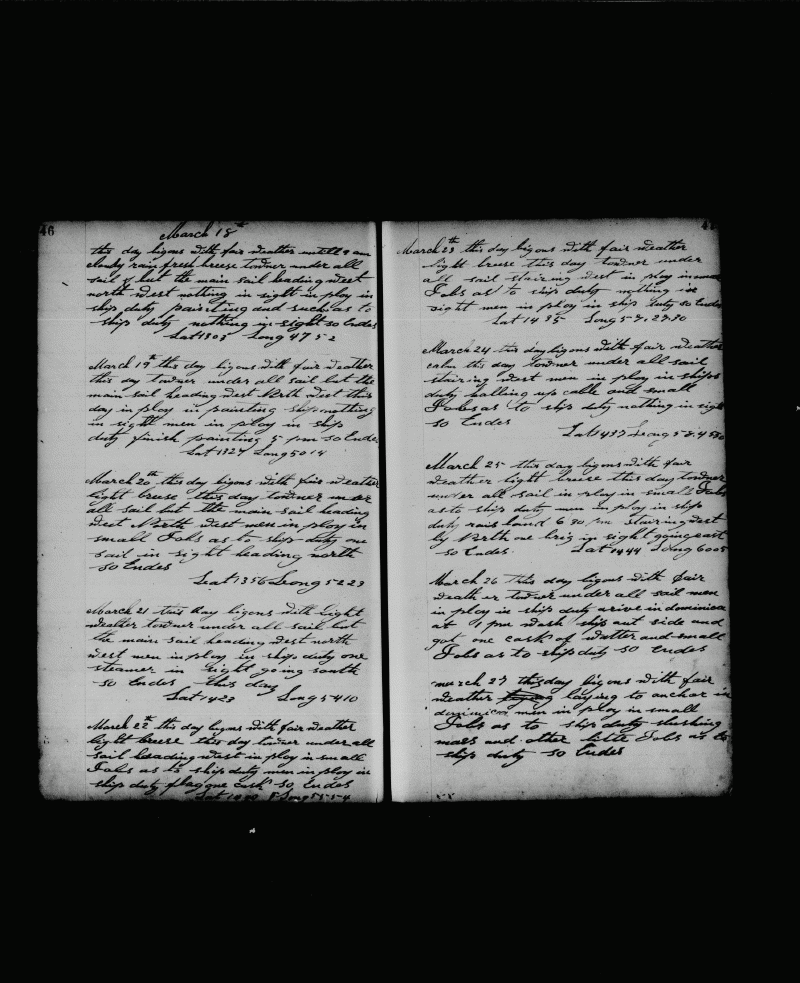 46
March 18th
this day bigons with fair weather untill 9 am
clouky rain fresh breese towner under all
sail but the main sail heading west
north west nothing in sight in ploy in
ship duty painting and such as to
ship duty nothing in sight so Endes
Lat 1303 Long 47 52
March 19th this day bigons with fair weather
this day towner under all sail but the
main sail heading west North West this
day in ploy in painting ship nothing
in sight men in ploy in ship
duty finish painting 5 pm so Endes
Lat 1327 Long 50 14
March 20th this day bigons with fair weather
light breese this day towner under
all sail but the main sail heading
west North west men in ploy in
small Jobs as to ship duty one
sail in sight heading north
so Endes
Lat 1356 Leong 52 23
March 21 this day bigons with light
weather towner under all sail but
the main sail heading west north
west men in ploy in ship duty one
steamer in sight going south
so Endes this day
Lat 1423 Long 5410
March 22th this day bigons with fair weather
light breese this day towner under all
sail heading west in ploy in small
Jobs as to ship duty men in ploy in
ship duty one cask so Endes
Lat Long 55 54
March 23th this day bigons with fair weather
light breese this day towner under
all sail stairing west in ploy in
Jobs as to ship duty nothing in
sight men in ploy in ship duty so Endes
Lat 14 35 Long 57.27.30
March 24 this day bigons with fair weather
calm this day towner under all sail
stairing west men in ploy in ships
duty halling up cable and small
Jobs as to ship duty nothing in sight
so Endes
Lat 1437 Leong 58.4
March 25 this day bigons with fair
weather light breese this day towner
under all sail in ploy in small Jobs
as to ship duty men in ploy in ship
duty rais land 6 30 pm stairing west
by North one brig in sight going east
so Endes Lat 1444 Long 6005
March 26 this day bigons with fair
weather towner under all sail men
in ploy in ship duty arive in dominica
at 1 pm wash ship out side and
got one cask of watter and small
Jobs as to ship duty so Endes
march 27 this day bigons with fair
weather laying to anchor in
dominica men in ploy in small
Jobs as to ship duty slushing
mass and other little Jobs as to
ship duty so Endes